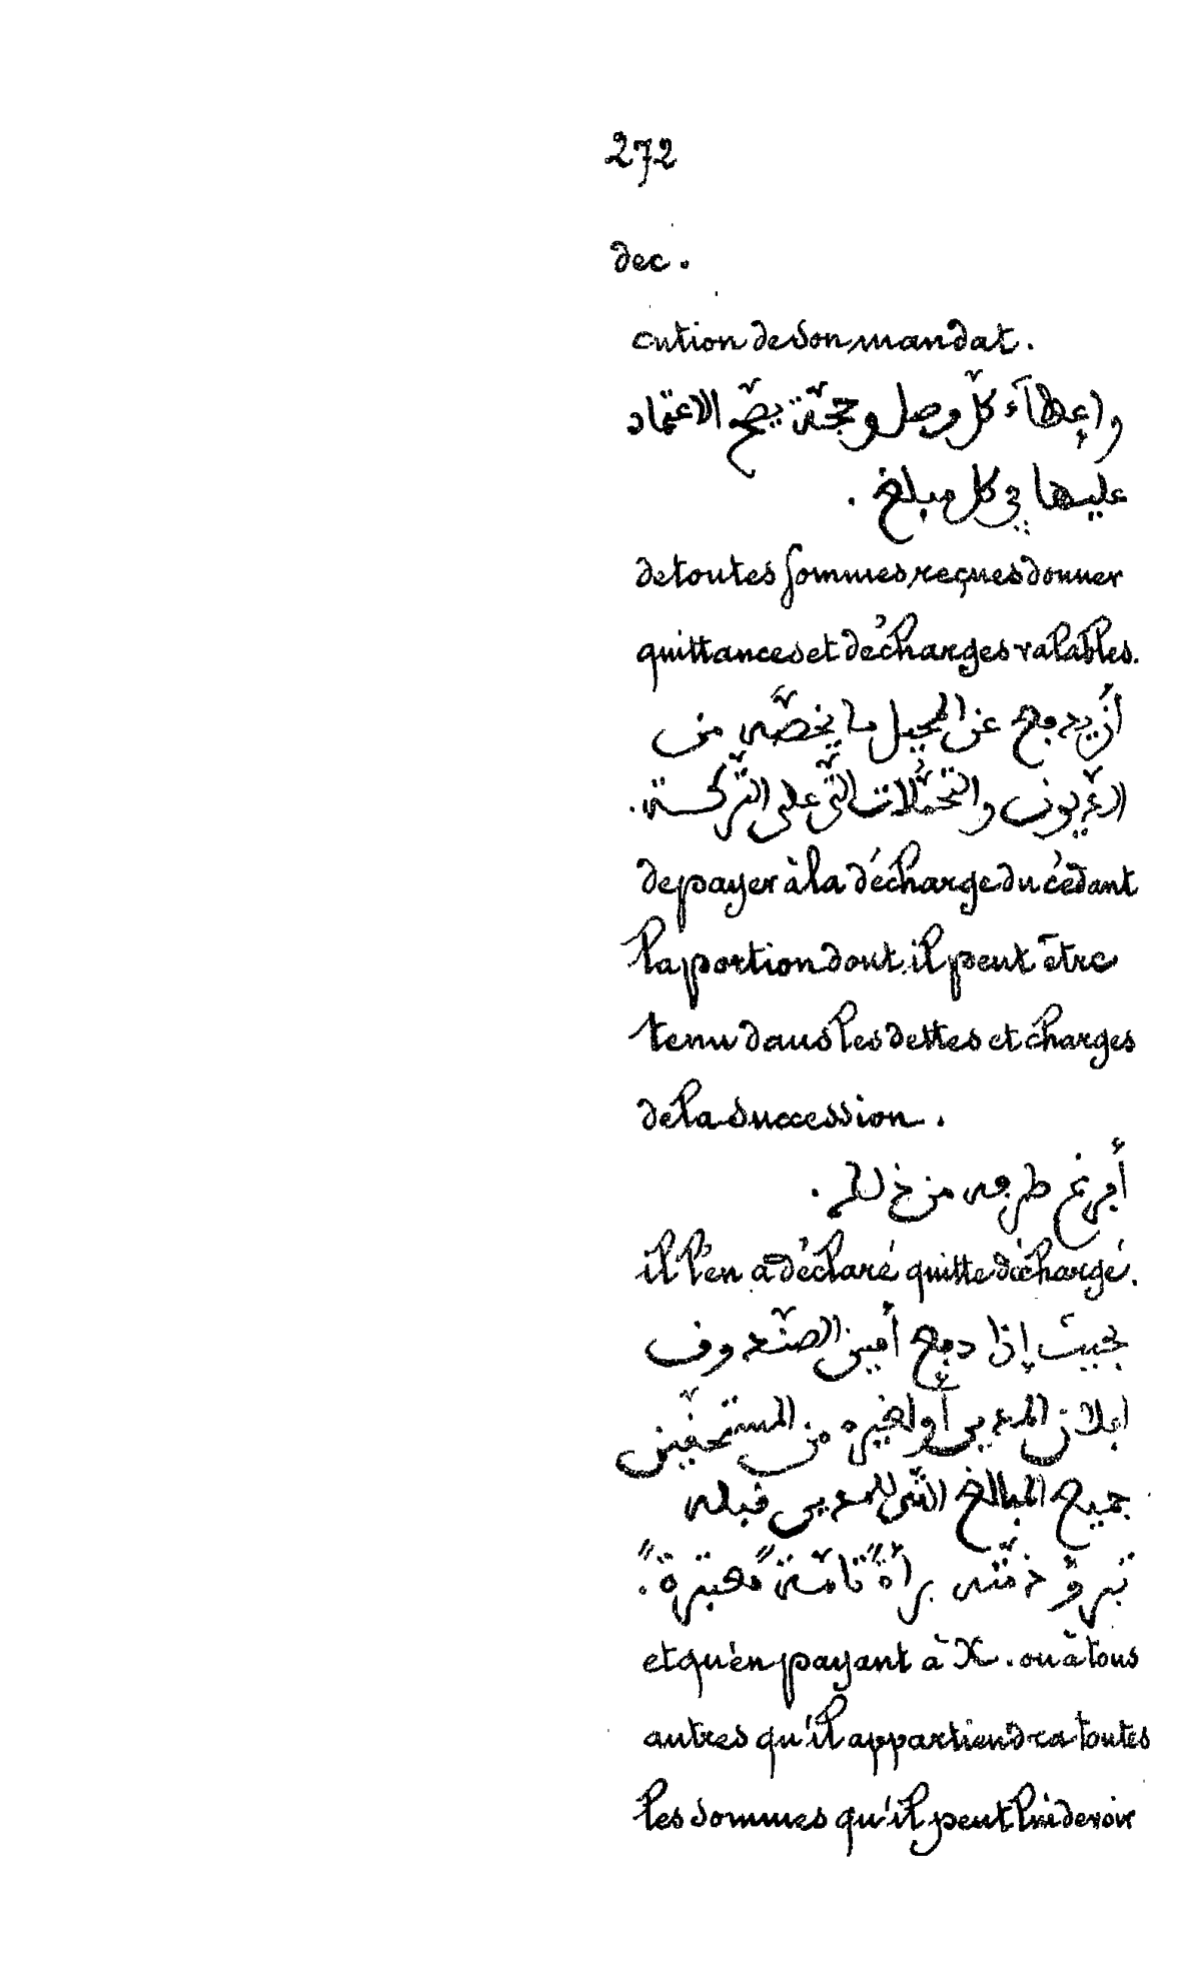 272
dec.
cution de son mandat.
وإعطآء كلّ وصل وحجّة يصّح الاعتماد
عليها في كل مبلغ.
de toutes sommes reçues donner
quittances et décharges valables.
أن يدفع عن المحيل ما يخصّه من
الدّيون والتحمّلات التّي على التّركة.
de payer à la décharge du cédant
la portion dont il peut être
tenu dans les dettes et charges
de la succession.
أبرئ طرفه من ذلك.
il l'en a déclaré quitte déchargé.
بحيث إذا دفع أمين الصّندوق
لفلان المدعي أو لغيره من المستحقّين
جميع المبالغ التّي للمدعي قبله
تبرؤ ذمّته برأةً تامّةً معتبرةً.
et qu'en payant à X. ou à tous
autres qu'il appartiendra toutes
les sommes qu'il peut lui devoir